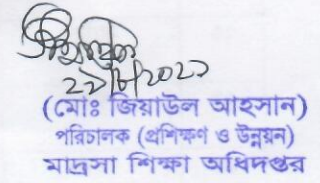 ২২/৮/২০২১
(মোঃ জিয়াউল আহসান)
পরিচালক (প্রশিক্ষণ ও উন্নয়ন)
মাদ্রাসা শিক্ষা অধিদপ্তর